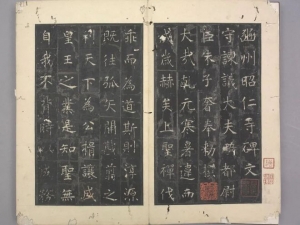 豳州昭仁寺碑文
守諫議大夫騎都尉
臣朱子奢奉勑撰
大哉乾元寒暑違而
成歲赫矣上聖禪代
乖而為道斯則淳源
既往弧矢之
利天下為公揖讓
皇王之業是知聖無
自我不時務